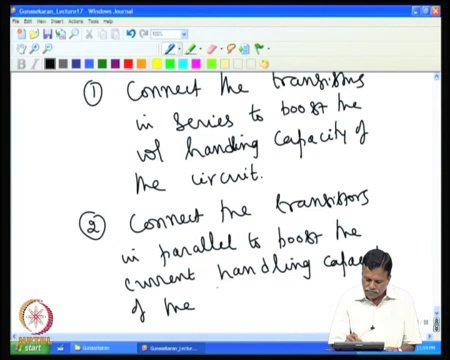 Gunasekaran_Lecture17 - Windows Journal
File Edit View Insert Actions Tools Help
100%
① Connect the transistors
in series to boost the
vol handling capacity of
the circuit.
② Connect the transistors
in parallel to boost the
current handling capac
of the
NPTEL
start
Gunasekaran
Gunasekaran_Lectu